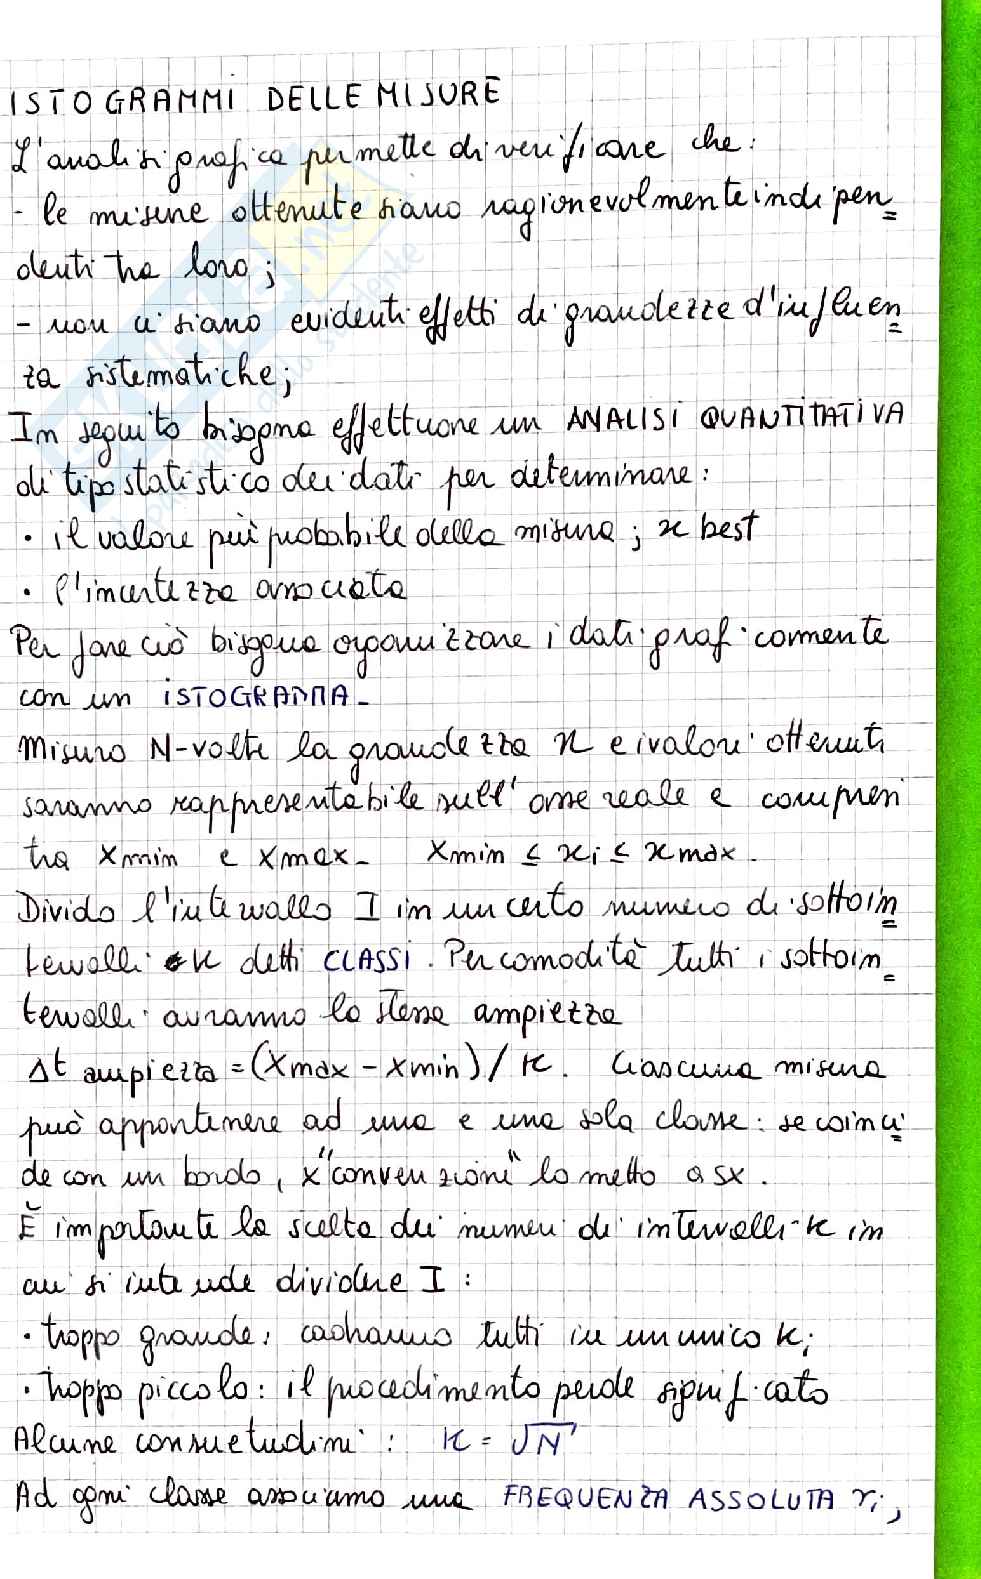 ISTOGRAMMI DELLE MISURE
L'analisi grafica permette di verificare che:
- le misure ottenute siano ragionevolmente indipen=
denti tra loro;
- non ci siano evidenti effetti di grandezze d'influen=
za sistematiche;
In seguito bisogna effettuare un ANALISI QUANTITATIVA
di tipo statistico dei dati per determinare:
• il valore più probabile della misura; x best
• l'incertezza associata
Per fare ciò bisogna organizzare i dati graficamente
con un ISTOGRAMMA-
Misuro N-volte la grandezza x e i valori ottenuti
saranno rappresentabile sull'asse reale e compresi
tra xmin e xmax- xmin ≤ xi ≤ xmax.
Divido l'intervallo I in un certo numero di sottoin=
tervalli K detti CLASSI. Per comodità tutti i sottoin=
tervalli avranno la stessa ampiezza
Δt ampiezza = (xmax - xmin) / K. Ciascuna misura
può appartenere ad una e una sola classe: se coinci=
de con un bordo, x "convenzioni" lo metto a sx.
È importante la scelta dei numeri di intervalli K in
cui si intende dividere I:
• troppo grande: cadranno tutti in un unico K;
• troppo piccolo: il procedimento perde significato
Alcune consuetudini: K = √N
Ad ogni classe associamo una FREQUENZA ASSOLUTA ri,